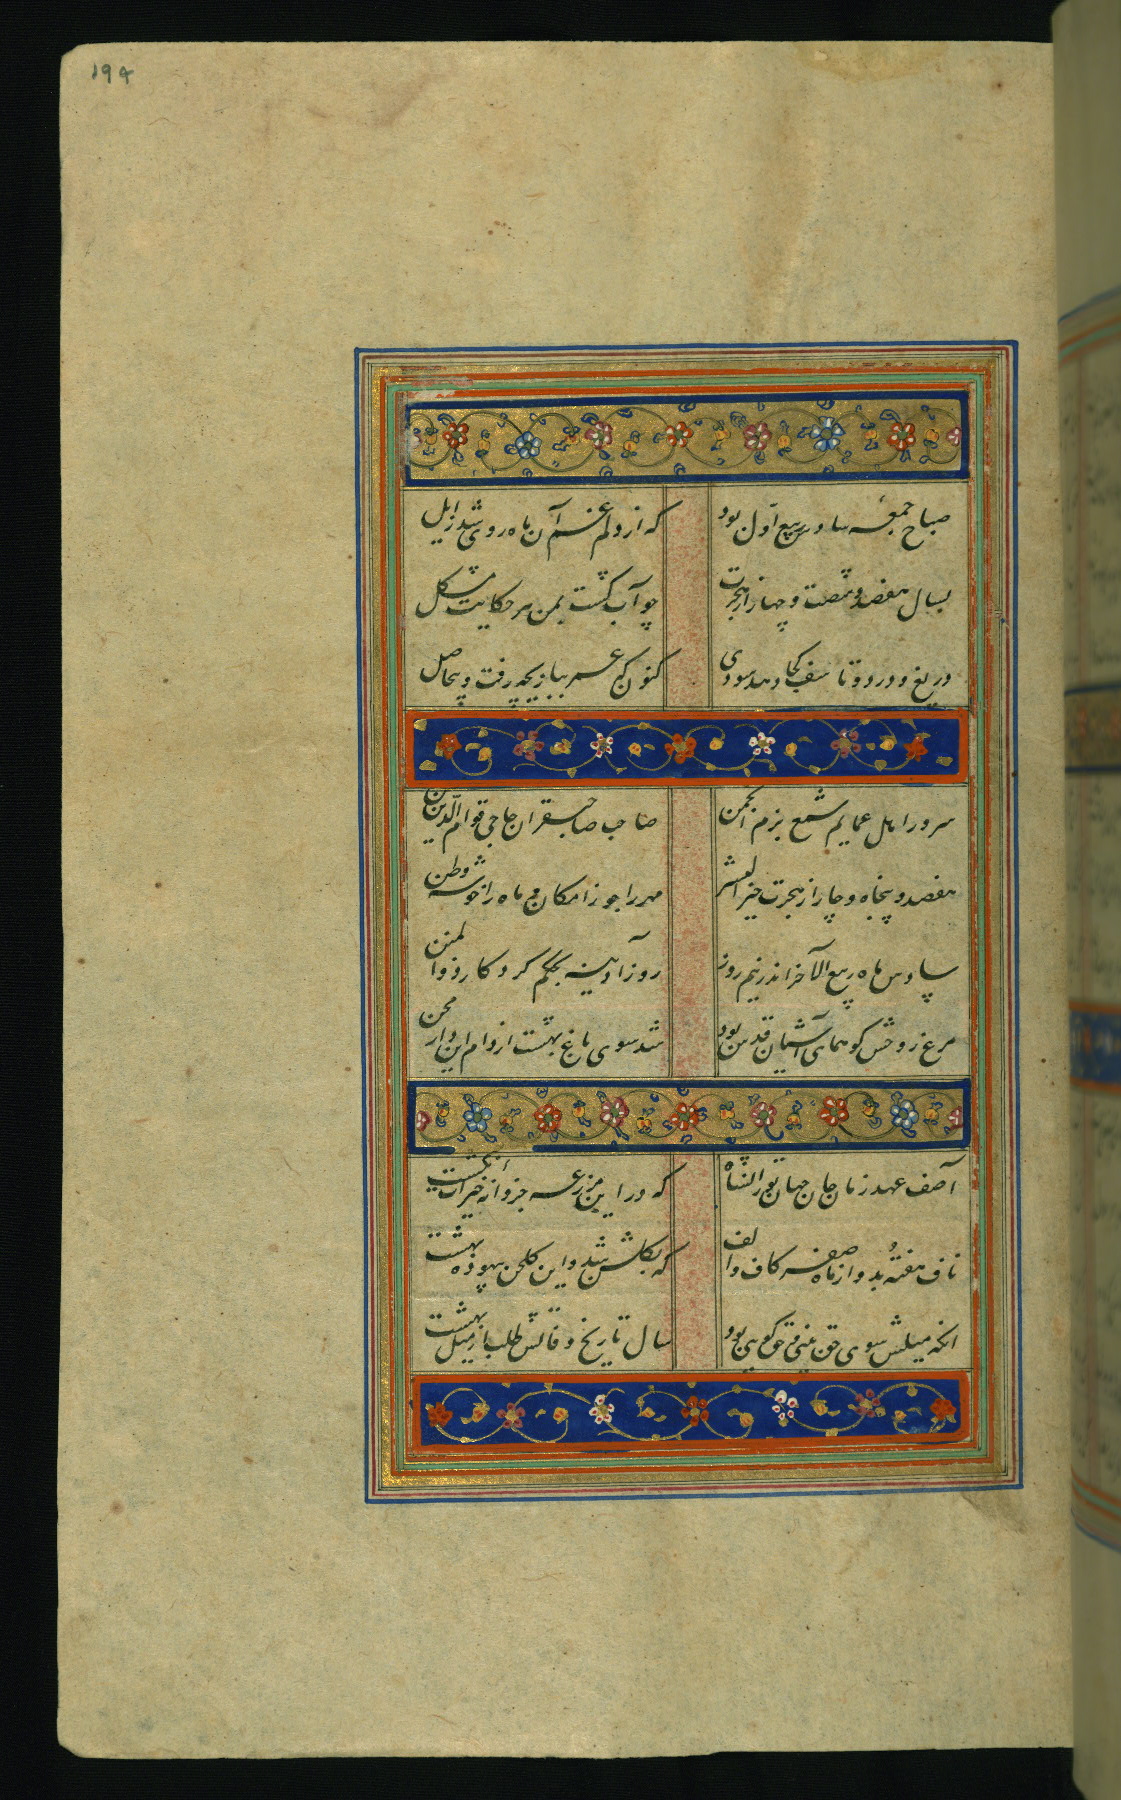 ۱۹۴
صباح جمعه سادس ربیع اول بود که از دلم غم آن ماه روی شد زایل
بسال هفصد و شصت و چهار از هجرت چو آب گشت بمن بر حکایت مشکل
دریغ و درد و تاسف کجا دهد سودی کنون که عمر ببازیچه رفت و بیحاصل
سرور اهل عمایم شمع بزم انجمن صاحب صاحبقران حاجی قوام الدین حسن
هفصد و پنجاه و چار از هجرت خیر البشر مهر را جوزا مکان و ماه را خوشه وطن
سادس ماه ربیع الآخر اندر نیم روز روز آدینه بحکم کردکار ذو المنن
مرغ روحش کو همای آشیان قدس بود شد سوی باغ بهشت از دام این دار محن
آصف عهد زمان جان جهان تورانشاه که در این مزرعه جز دانه خیرات نکشت
ناف هفته بد و از ماه صفر کاف و الف که بگلشن شد و این گلخن پر دود بهشت
انکه میلش سوی حق بینی و حق گویی بود سال تاریخ وفاتش طلب از میل بهشت